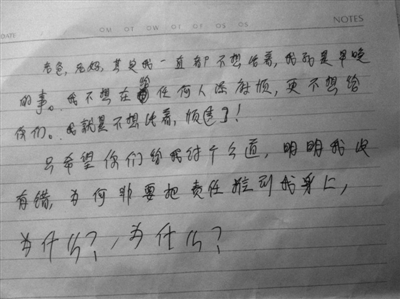 DATE MO TU WE TH FR SA SU NOTES
老爸,老妈,其实我一直都不想活着,我死是早晚
的事。我不想在给任何人添麻烦,更不想给
你们。我就是不想活着,烦透了!
只希望你们给我讨个公道,明明我没
有错,为何非要把责任推到我身上,
为什么?,为什么?